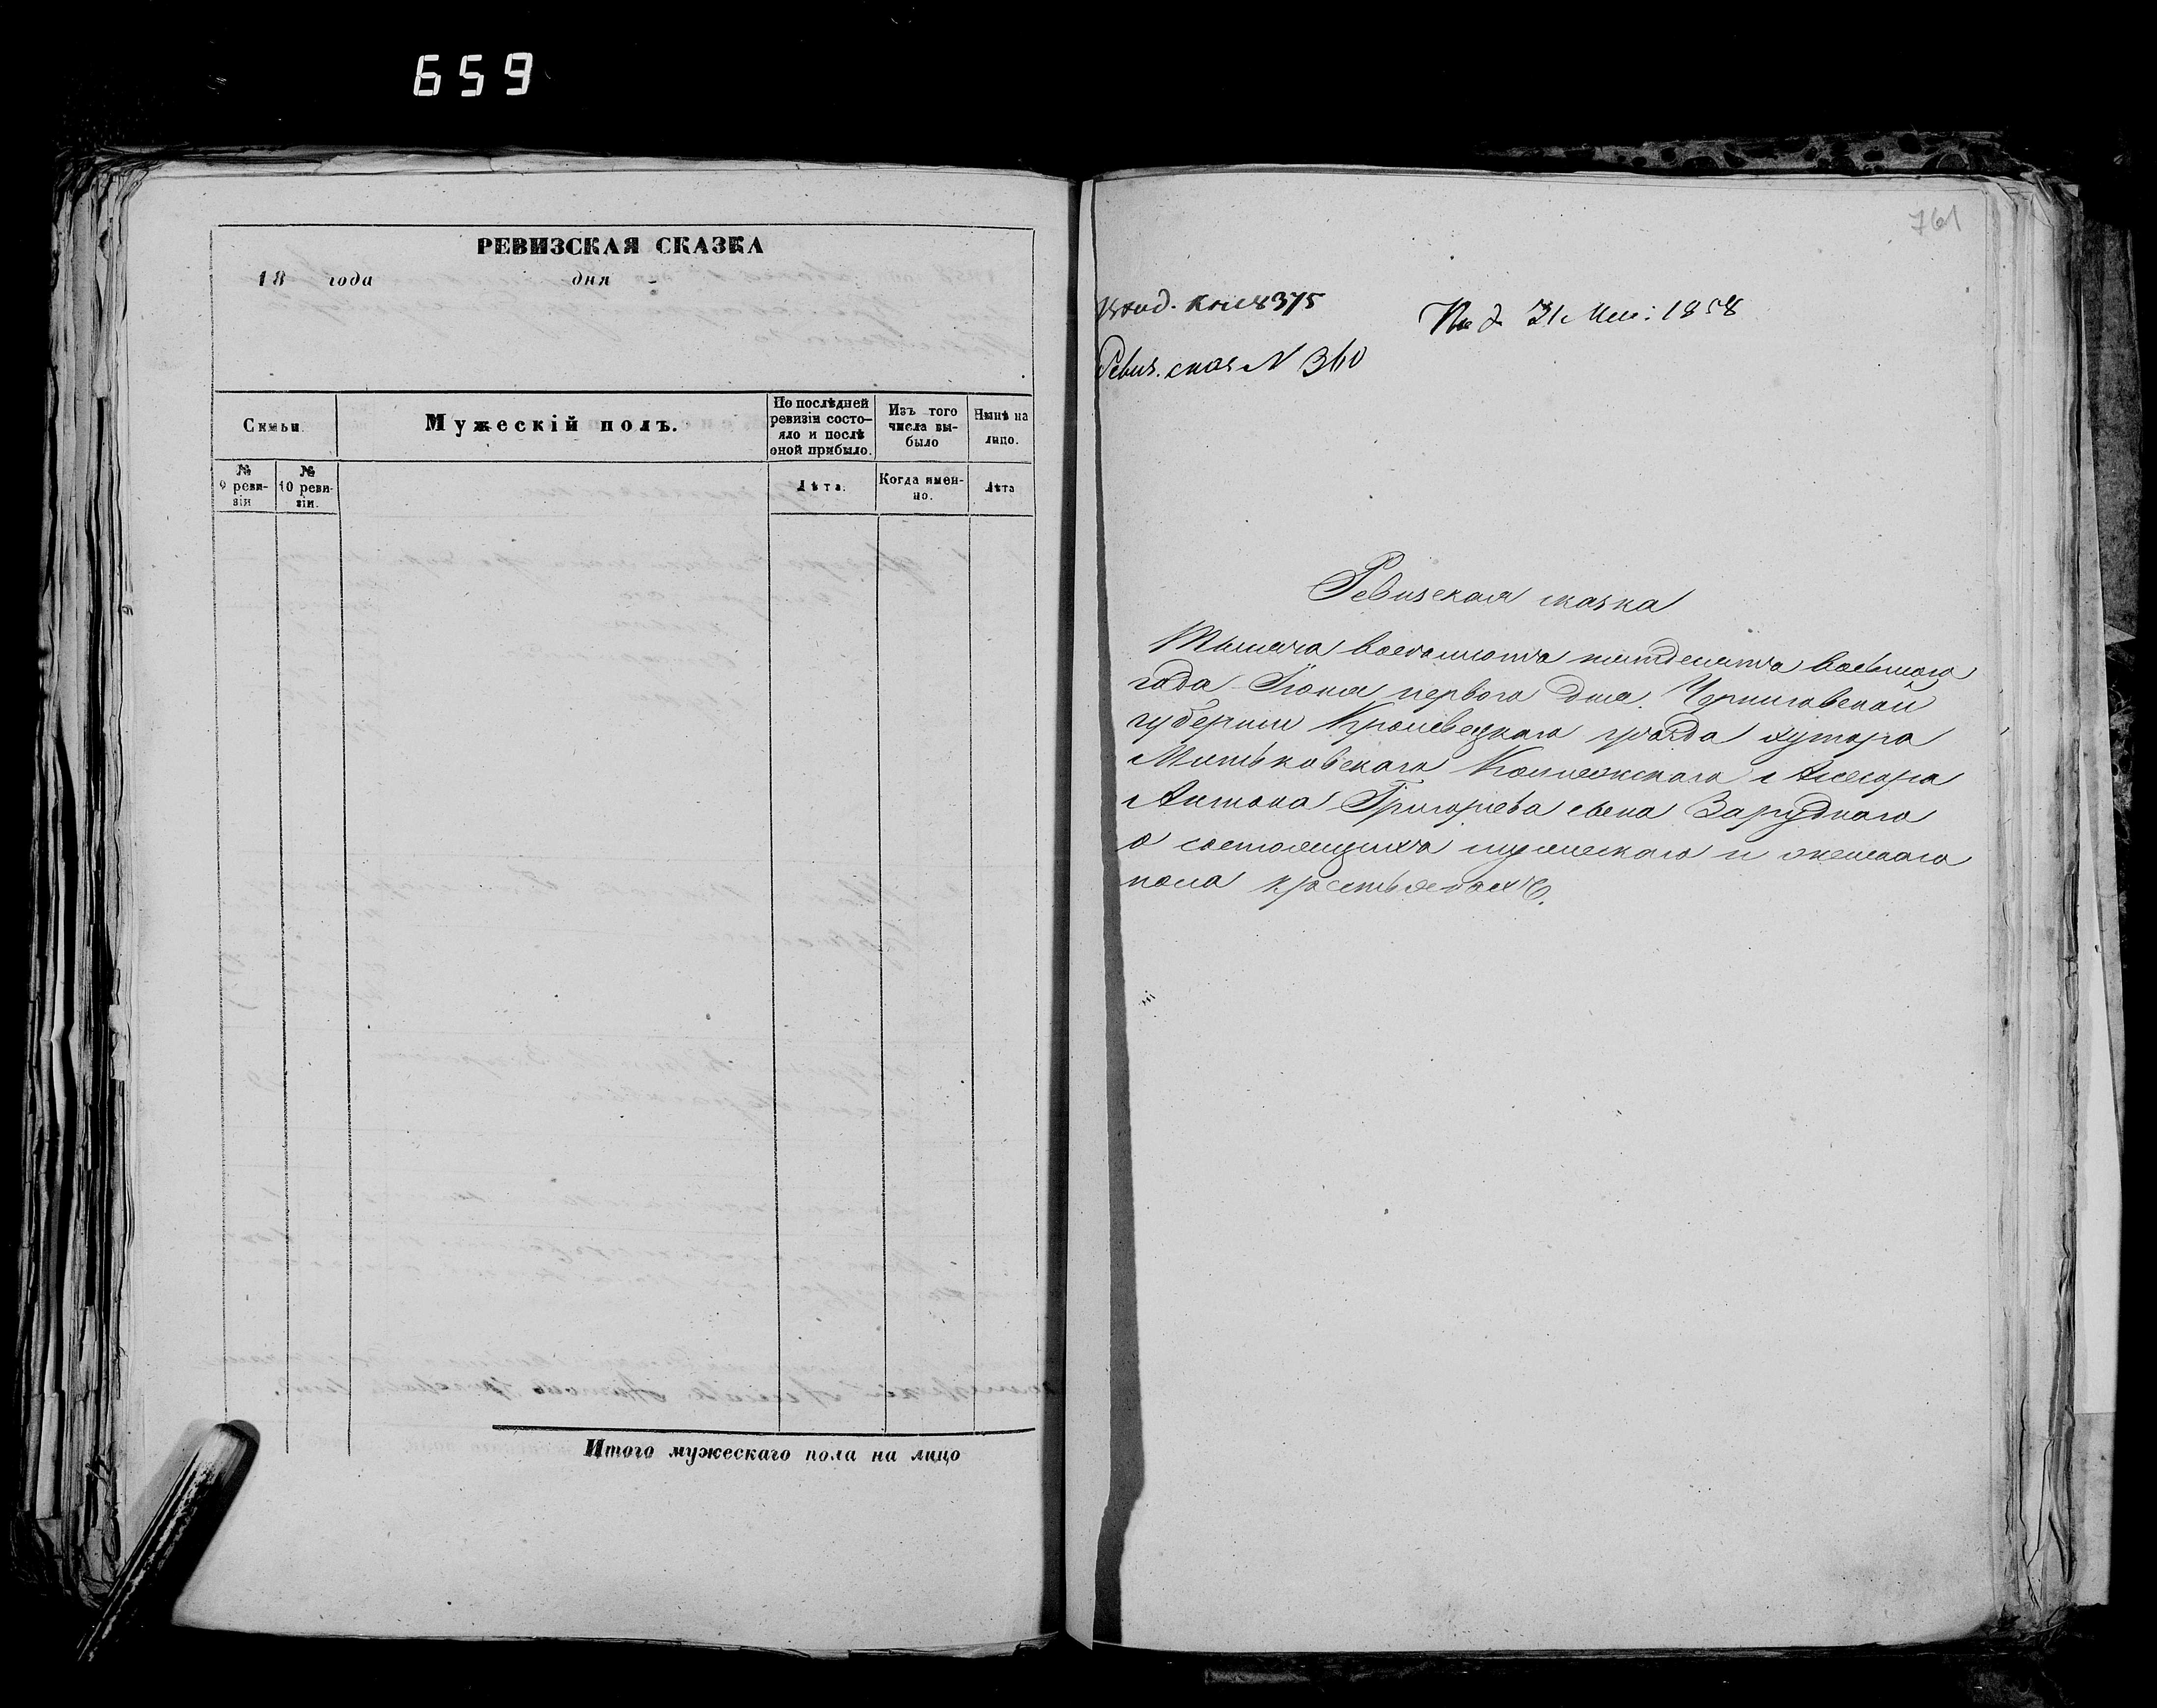 659
РЕВИЗСКАЯ СКАЗКА
18 года дня
Семьи.
Мужескій полъ.
По послѣдней ревизіи состо-
яло и послѣ оной прибыло.
Изъ того числа вы-
было
Нынѣ на лицо.
№ 9 реви-
зіи
№ 10 реви-
зіи.
Лѣта.
Когда имен-
но.
Лѣта
Итого мужескаго пола на лицо
761
8375
31 Мая: 1858
Ревиз. сказ N 360
Ревизская сказка
Тысяча восемьсотъ пятдесятъ восьмого
года Іюня первого дня. Черниговской
губерніи Кролевецкаго уѣзда хутора
Митьковскаго Коллежскаго Асесора
Антона Григорьева сына Заруднаго
о состоящихъ мужескаго и женскаго
пола крестьянахъ.